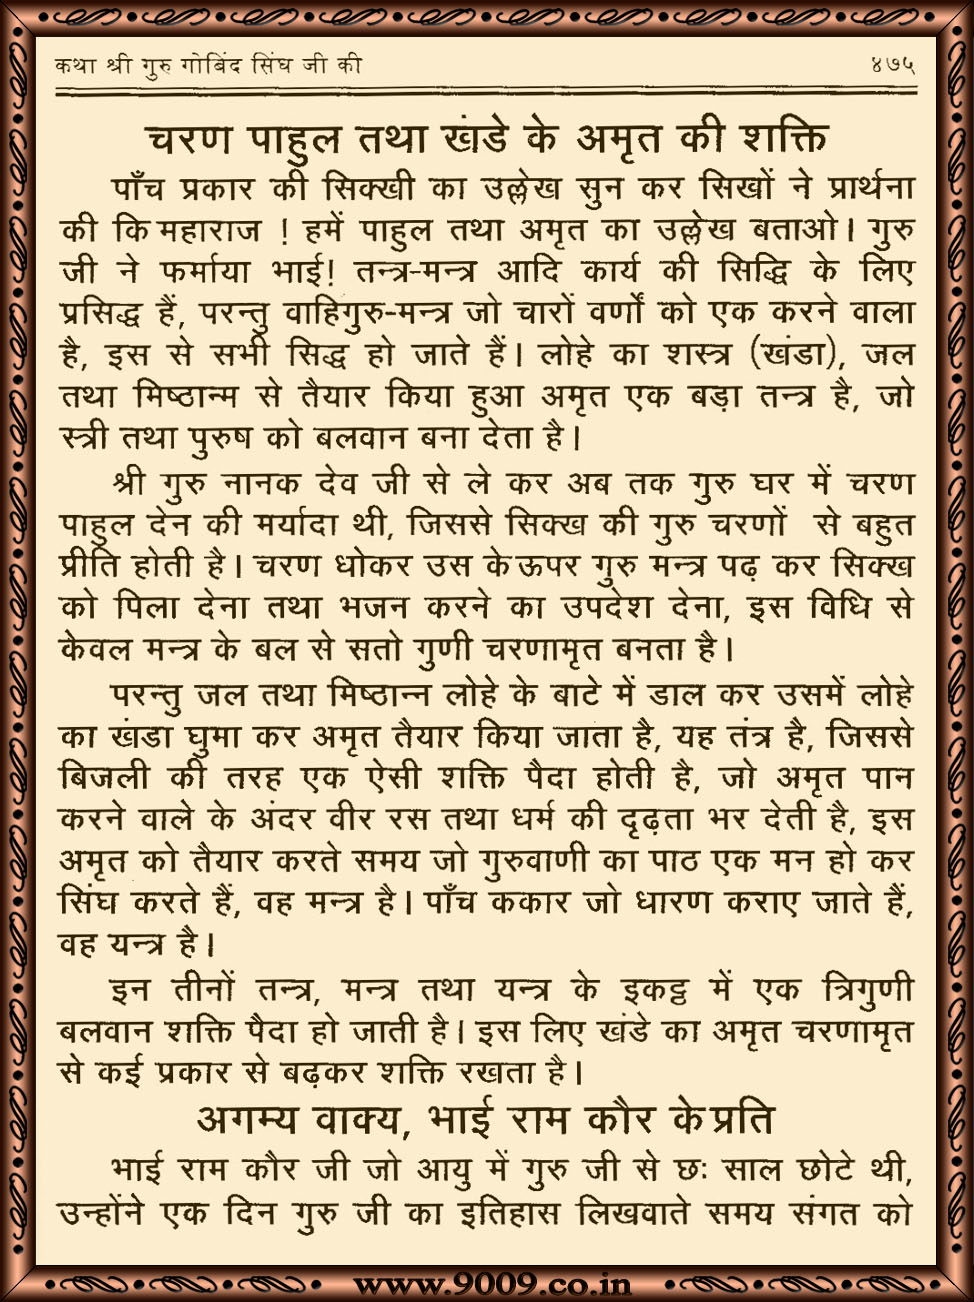 कथा श्री गुरु गोबिंद सिंघ जी की ४७५
चरण पाहुल तथा खंडे के अमृत की शक्ति
पाँच प्रकार की सिक्खी का उल्लेख सुन कर सिखों ने प्रार्थना
की कि महाराज ! हमें पाहुल तथा अमृत का उल्लेख बताओ। गुरु
जी ने फर्माया भाई! तन्त्र-मन्त्र आदि कार्य की सिद्धि के लिए
प्रसिद्ध हैं, परन्तु वाहिगुरु-मन्त्र जो चारों वर्णों को एक करने वाला
है, इस से सभी सिद्ध हो जाते हैं। लोहे का शस्त्र (खंडा), जल
तथा मिष्ठान्म से तैयार किया हुआ अमृत एक बड़ा तन्त्र है, जो
स्त्री तथा पुरुष को बलवान बना देता है।
श्री गुरु नानक देव जी से ले कर अब तक गुरु घर में चरण
पाहुल देन की मर्यादा थी, जिससे सिक्ख की गुरु चरणों से बहुत
प्रीति होती है। चरण धोकर उस के ऊपर गुरु मन्त्र पढ़ कर सिक्ख
को पिला देना तथा भजन करने का उपदेश देना, इस विधि से
केवल मन्त्र के बल से सतो गुणी चरणामृत बनता है।
परन्तु जल तथा मिष्ठान्न लोहे के बाटे में डाल कर उसमें लोहे
का खंडा घुमा कर अमृत तैयार किया जाता है, यह तंत्र है, जिससे
बिजली की तरह एक ऐसी शक्ति पैदा होती है, जो अमृत पान
करने वाले के अंदर वीर रस तथा धर्म की दृढ़ता भर देती है, इस
अमृत को तैयार करते समय जो गुरुवाणी का पाठ एक मन हो कर
सिंघ करते हैं, वह मन्त्र है। पाँच ककार जो धारण कराए जाते हैं,
वह यन्त्र है।
इन तीनों तन्त्र, मन्त्र तथा यन्त्र के इकट्ठ में एक त्रिगुणी
बलवान शक्ति पैदा हो जाती है। इस लिए खंडे का अमृत चरणामृत
से कई प्रकार से बढ़कर शक्ति रखता है।
अगम्य वाक्य, भाई राम कौर के प्रति
भाई राम कौर जी जो आयु में गुरु जी से छः साल छोटे थी,
उन्होंने एक दिन गुरु जी का इतिहास लिखवाते समय संगत को
www.9009.co.in